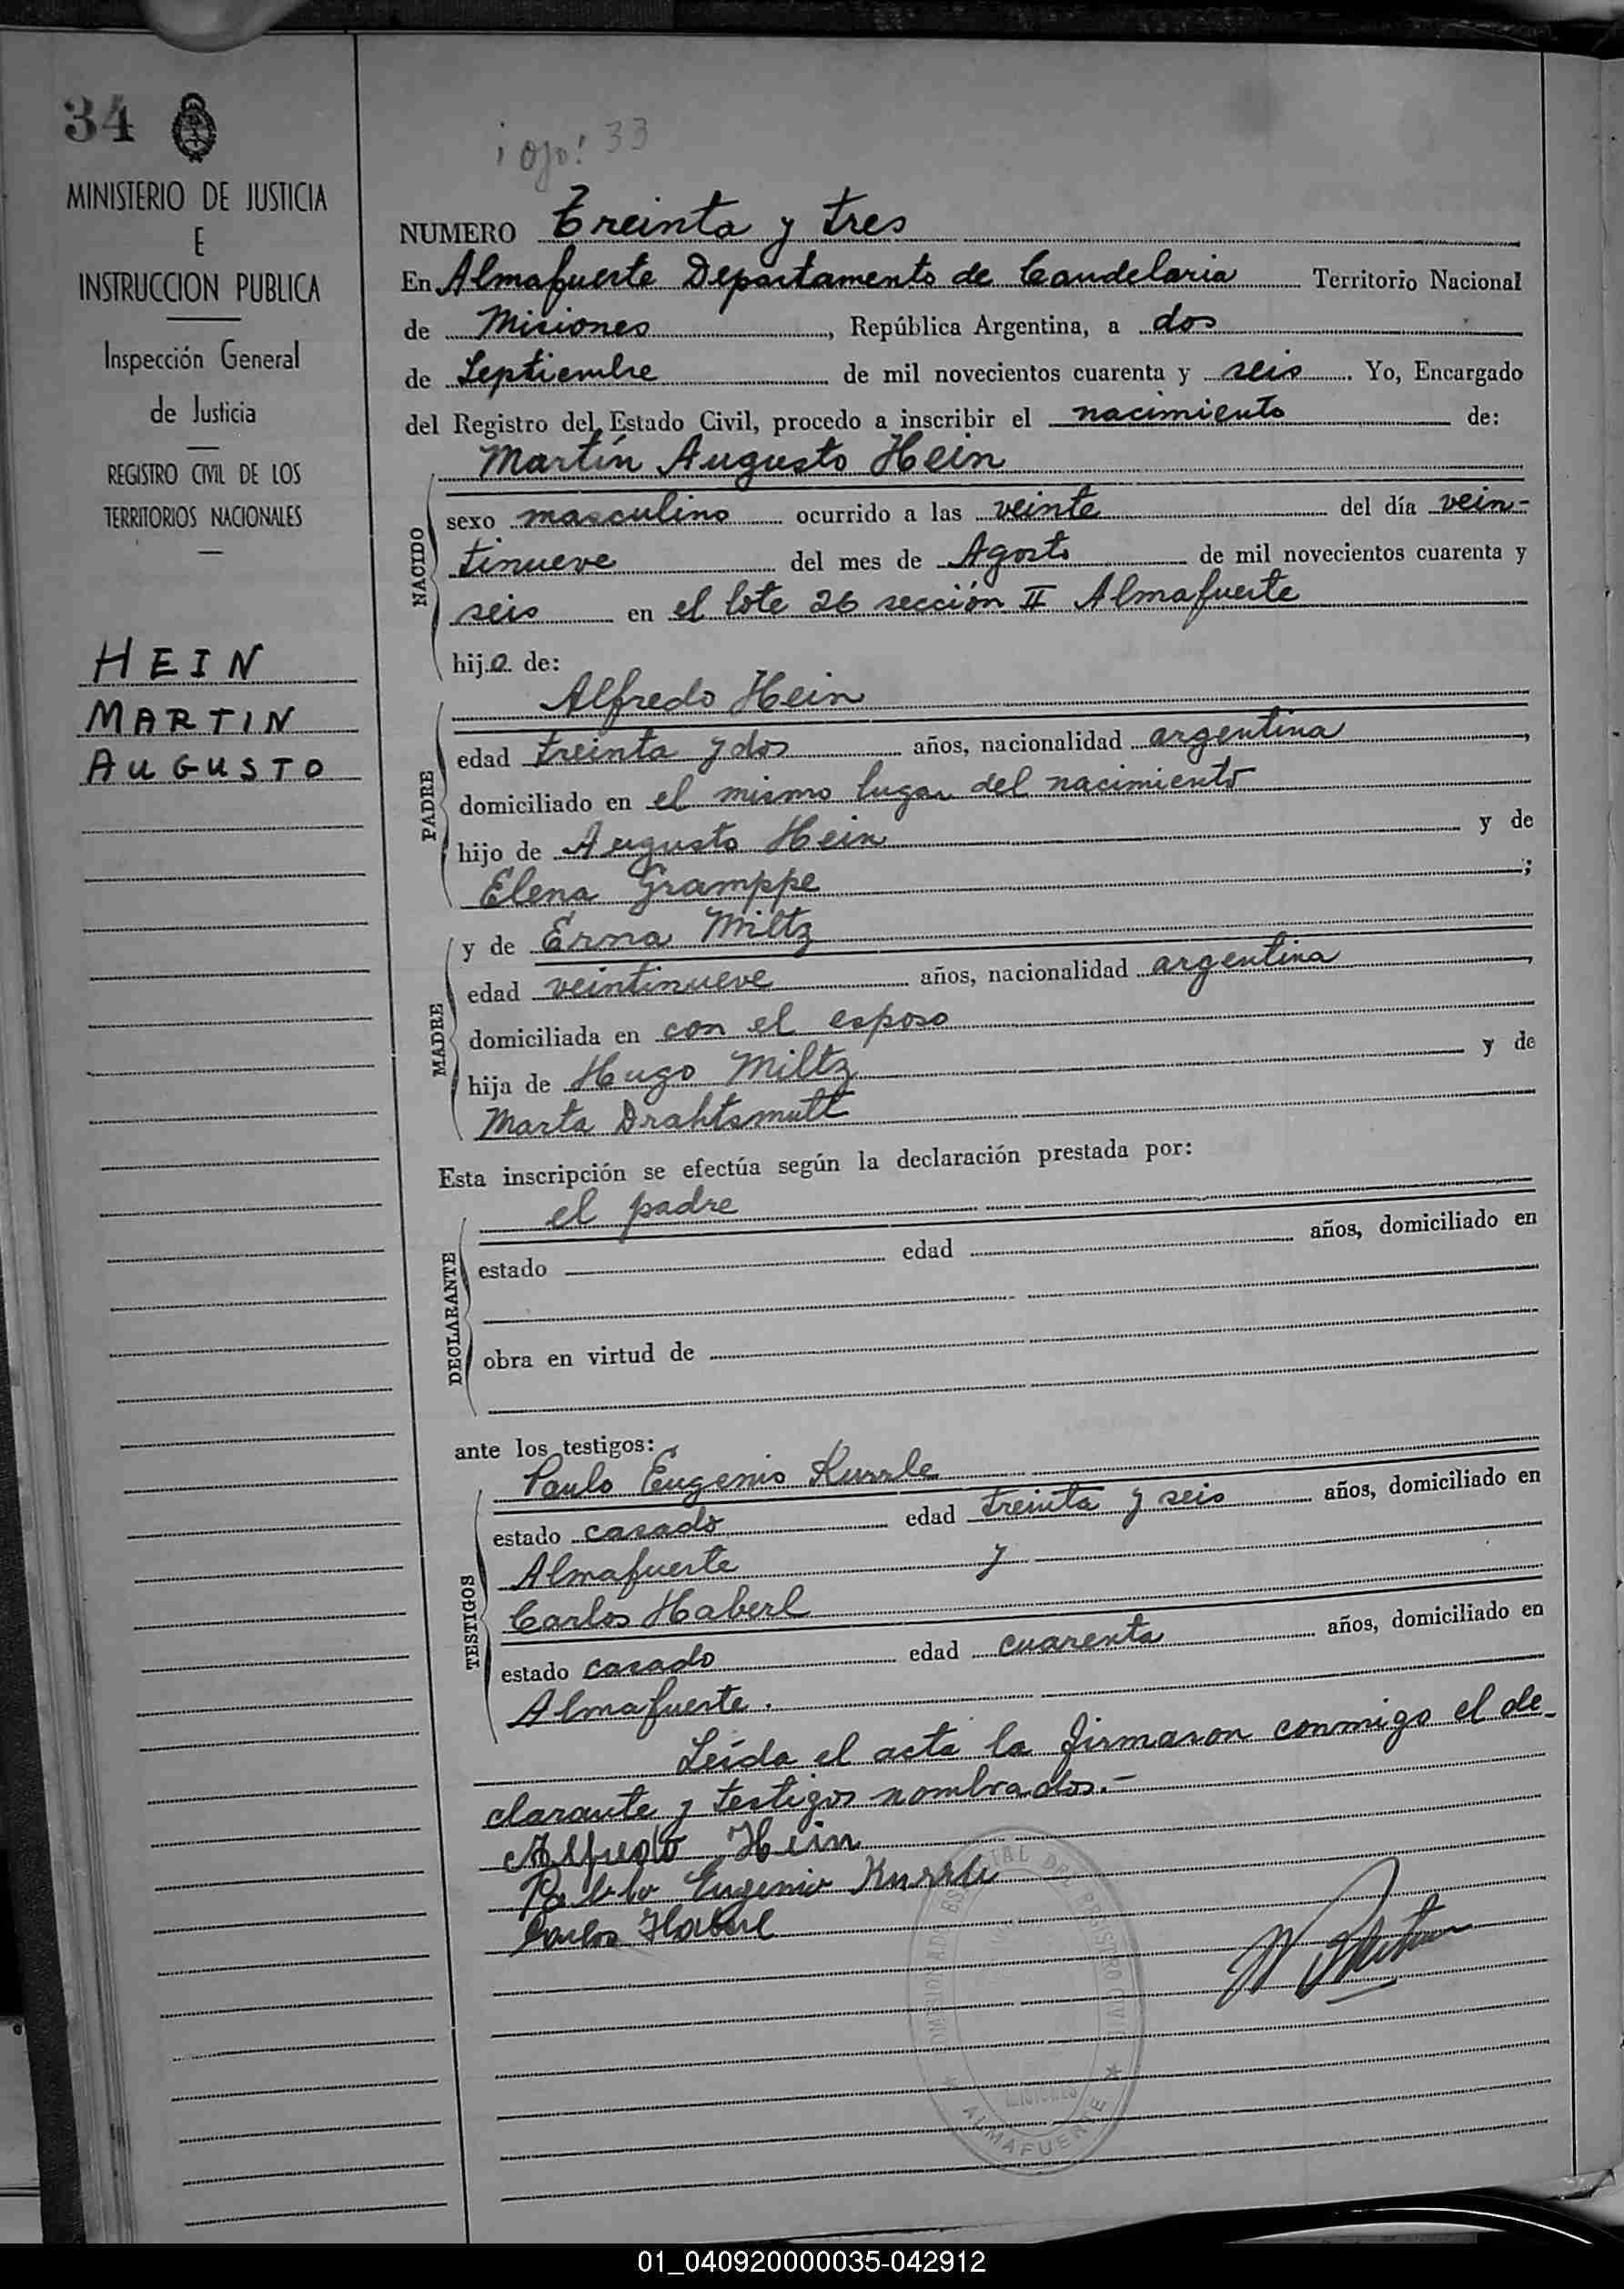 34
MINISTERIO DE JUSTICIA
E
INSTRUCCION PUBLICA
Inspección General
de Justicia
REGISTRO CIVIL DE LOS
TERRITORIOS NACIONALES
HEIN
MARTIN
AUGUSTO
¡ojo! 33
NUMERO Treinta y tres
En Almafuerte Departamento de Candelaria Territorio Nacional
de Misiones, República Argentina, a dos
de Septiembre de mil novecientos cuarenta y seis. Yo, Encargado
del Registro del Estado Civil, procedo a inscribir el nacimiento de:
Martín Augusto Hein
NACIDO
sexo masculino ocurrido a las veinte del día vein-
tinueve del mes de Agosto de mil novecientos cuarenta y
seis en el lote 26 sección II Almafuerte
hijo de:
Alfredo Hein
PADRE
edad treinta y dos años, nacionalidad argentina,
domiciliado en el mismo lugar del nacimiento
hijo de Augusto Hein y de
Elena Gramppe;
y de Erna Miltz
MADRE
edad veintinueve años, nacionalidad argentina,
domiciliada en con el esposo
hija de Hugo Miltz y de
Marta Drahtsmutt
Esta inscripción se efectúa según la declaración prestada por:
el padre
DECLARANTE
estado edad años, domiciliado en
obra en virtud de
ante los testigos:
Paulo Eugenio Kurrle
TESTIGOS
estado casado edad treinta y seis años, domiciliado en
Almafuerte y
Carlos Haberl
estado casado edad cuarenta años, domiciliado en
Almafuerte.
Leída el acta la firmaron conmigo el de-
clarante y testigos nombrados.-
Alfredo Hein
Pablo Eugenio Kurrle
Carlos Haberl
REGISTRO CIVIL
MISIONES
★ ALMAFUERTE ★
01_040920000035-042912